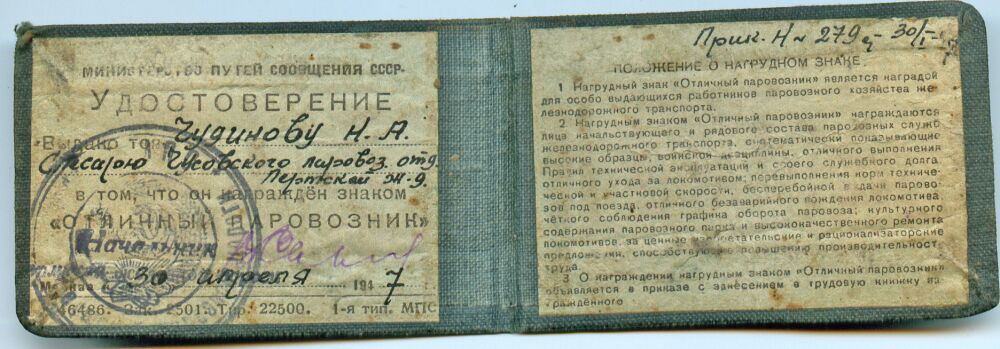 МИНИСТЕРСТВО ПУТЕЙ СООБЩЕНИЯ СССР
УДОСТОВЕРЕНИЕ
Выдано тов. Чудинову Н. А.
Слесарю Чусовского паровоз. отд.
Пермской ж.д.
в том, что он награждён знаком
«ОТЛИЧНЫЙ ПАРОВОЗНИК»
Начальник
Москва 30 апреля 1947
46486. Зак. 2501. Тир. 22500. 1-я тип. МПС
Прик. № 279
ПОЛОЖЕНИЕ О НАГРУДНОМ ЗНАКЕ
1 Нагрудный знак «Отличный паровозник» является наградой
для особо выдающихся работников паровозного хозяйства же-
лезнодорожного транспорта.
2 Нагрудным знаком «Отличный паровозник» награждаются
лица начальствующего и рядового состава паровозных служб
железнодорожного транспорта, систематически показывающие
высокие образцы воинской дисциплины, отличного выполнения
Правил технической эксплуатации и своего служебного долга,
отличного ухода за локомотивом; перевыполнения норм техниче-
ской и участковой скорости, бесперебойной выдачи парово-
зов под поезда, отличного безаварийного вождения локомотива,
чёткого соблюдения графика оборота паровоза; культурного
содержания паровозного парка и высококачественного ремонта
локомотивов, за ценные изобретательские и рационализаторские
предложения, способствующие повышению производительности
труда
3 О награждении нагрудным знаком «Отличный паровозник»
объявляется в приказе с занесением в трудовую книжку на-
граждённого